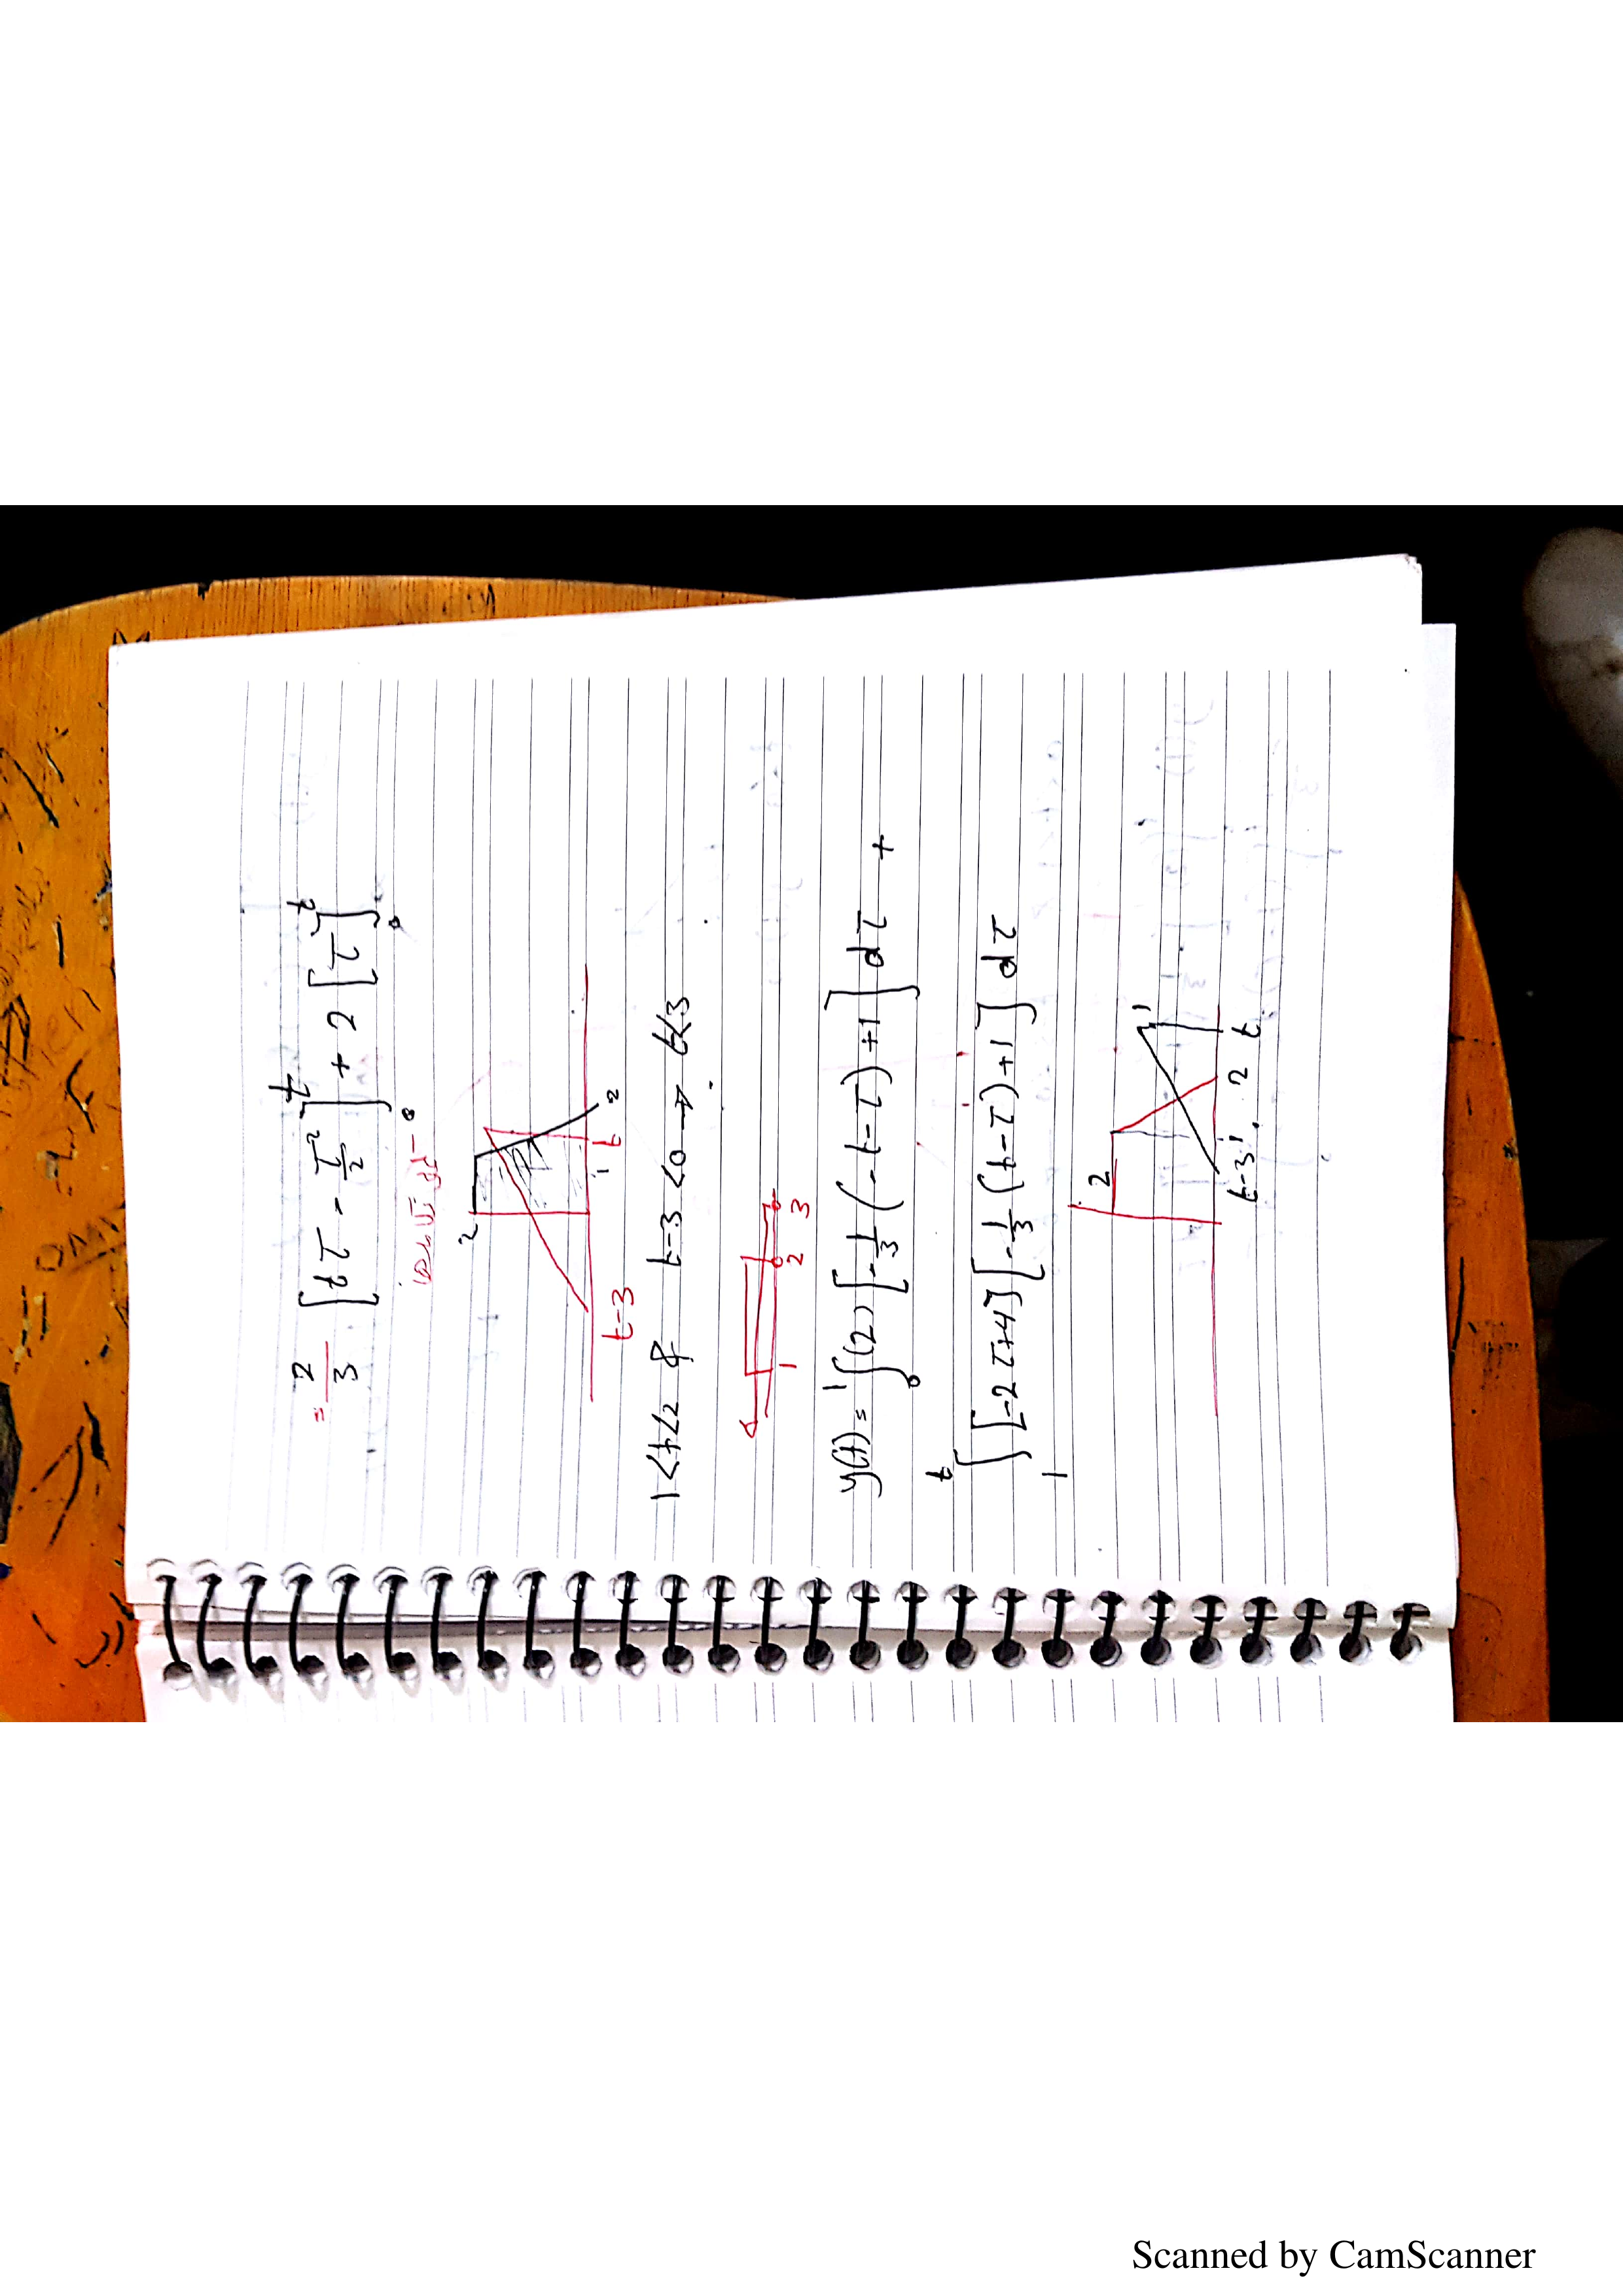 = 2/3 [tτ - τ²/2]₀ᵗ + 2 [τ]₀ᵗ
2
t-3 1 t 2
1<t<2 & t-3<0 → t<3
1 2 3
y(t) = ∫₀¹ (2) [-1/3 (-t-τ) +1] dτ +
∫₁ᵗ [-2τ+4] [-1/3 (t-τ) +1] dτ
2 1
t-3 1 2 t
Scanned by CamScanner